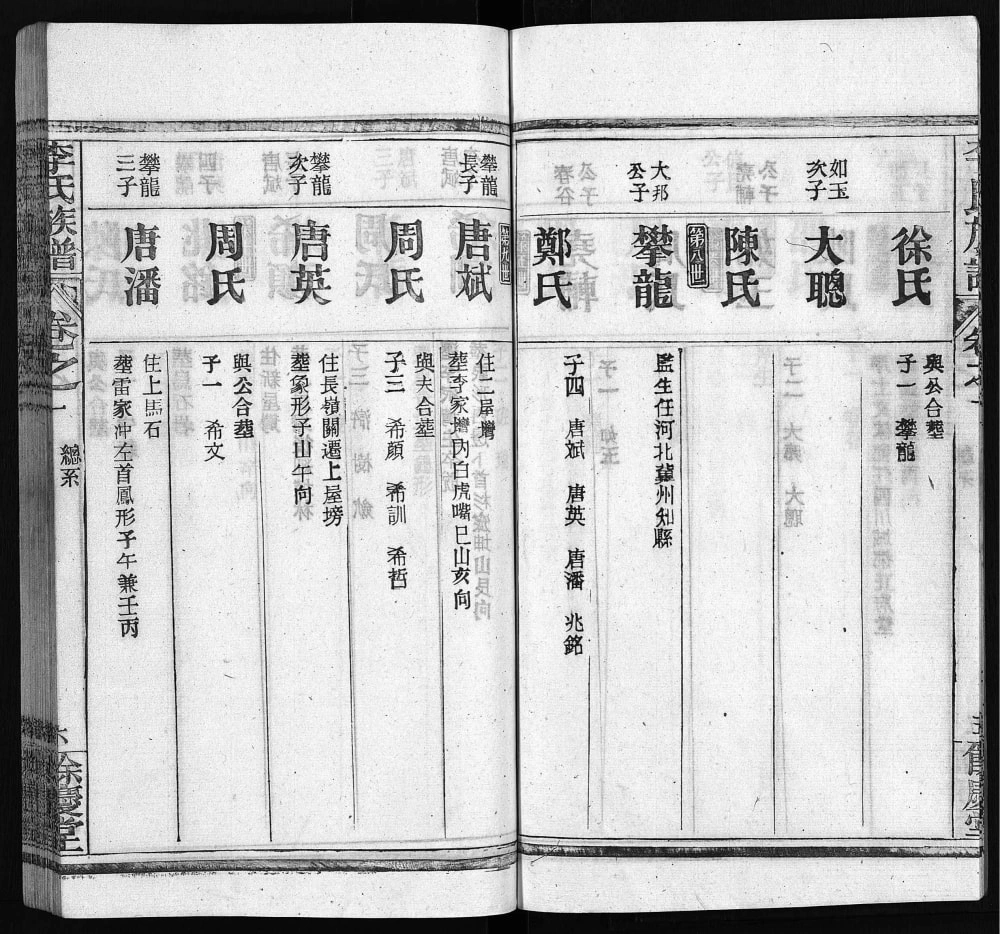 徐氏
與公合塟
子一 攀龍
如玉
次子
大聰
陳氏
第八世
大邦
公子
攀龍
監生任河北冀州知縣
鄭氏
子四 唐斌 唐英 唐潘 兆銘
攀龍
長子
唐斌
住二屋壪
塟李家壪內白虎嘴巳山亥向
周氏
與夫合塟
子三 希顔 希訓 希哲
攀龍
次子
唐英
住長嶺關遷上屋塝
塟象形子山午向
周氏
與公合塟
子一 希文
攀龍
三子
唐潘
住上馬石
塟雷家冲左首鳳形子午兼壬丙
李氏族譜
卷之一
緫系
六
餘慶堂